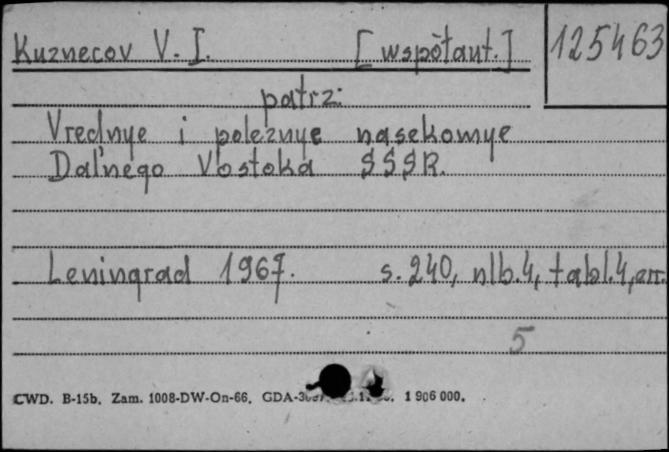 Kuznecov V. I. [współaut.] 125463
patrz:
Vrednye i poleznye nasekomye
Dal'nego Vostoka SSSR.
Leningrad 1967. s. 240, nlb. 4, tabl. 4, err.
5
CWD. B-15b. Zam. 1008-DW-On-66. GDA- 1 906 000.